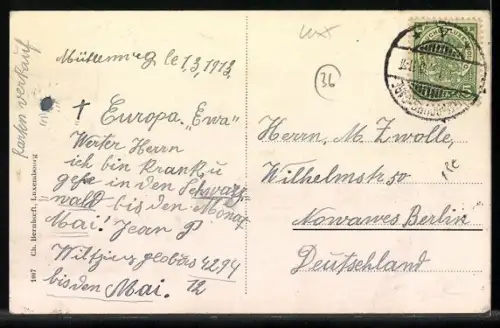 le 1.3.1913.
+ Europa „Ewa"
Werter Herrn
ich bin Krank u
gehe in den Schwarz-
wald bis den Monat
Mai! Jean P
42.94
bis den Mai. 12
Karten verkauf
1907 Ch. Bernhoeft, Luxembourg
36
Herrn, M. Zwolle,
Wilhelmstr 50
Nowawes Berlin
Deutschland
5